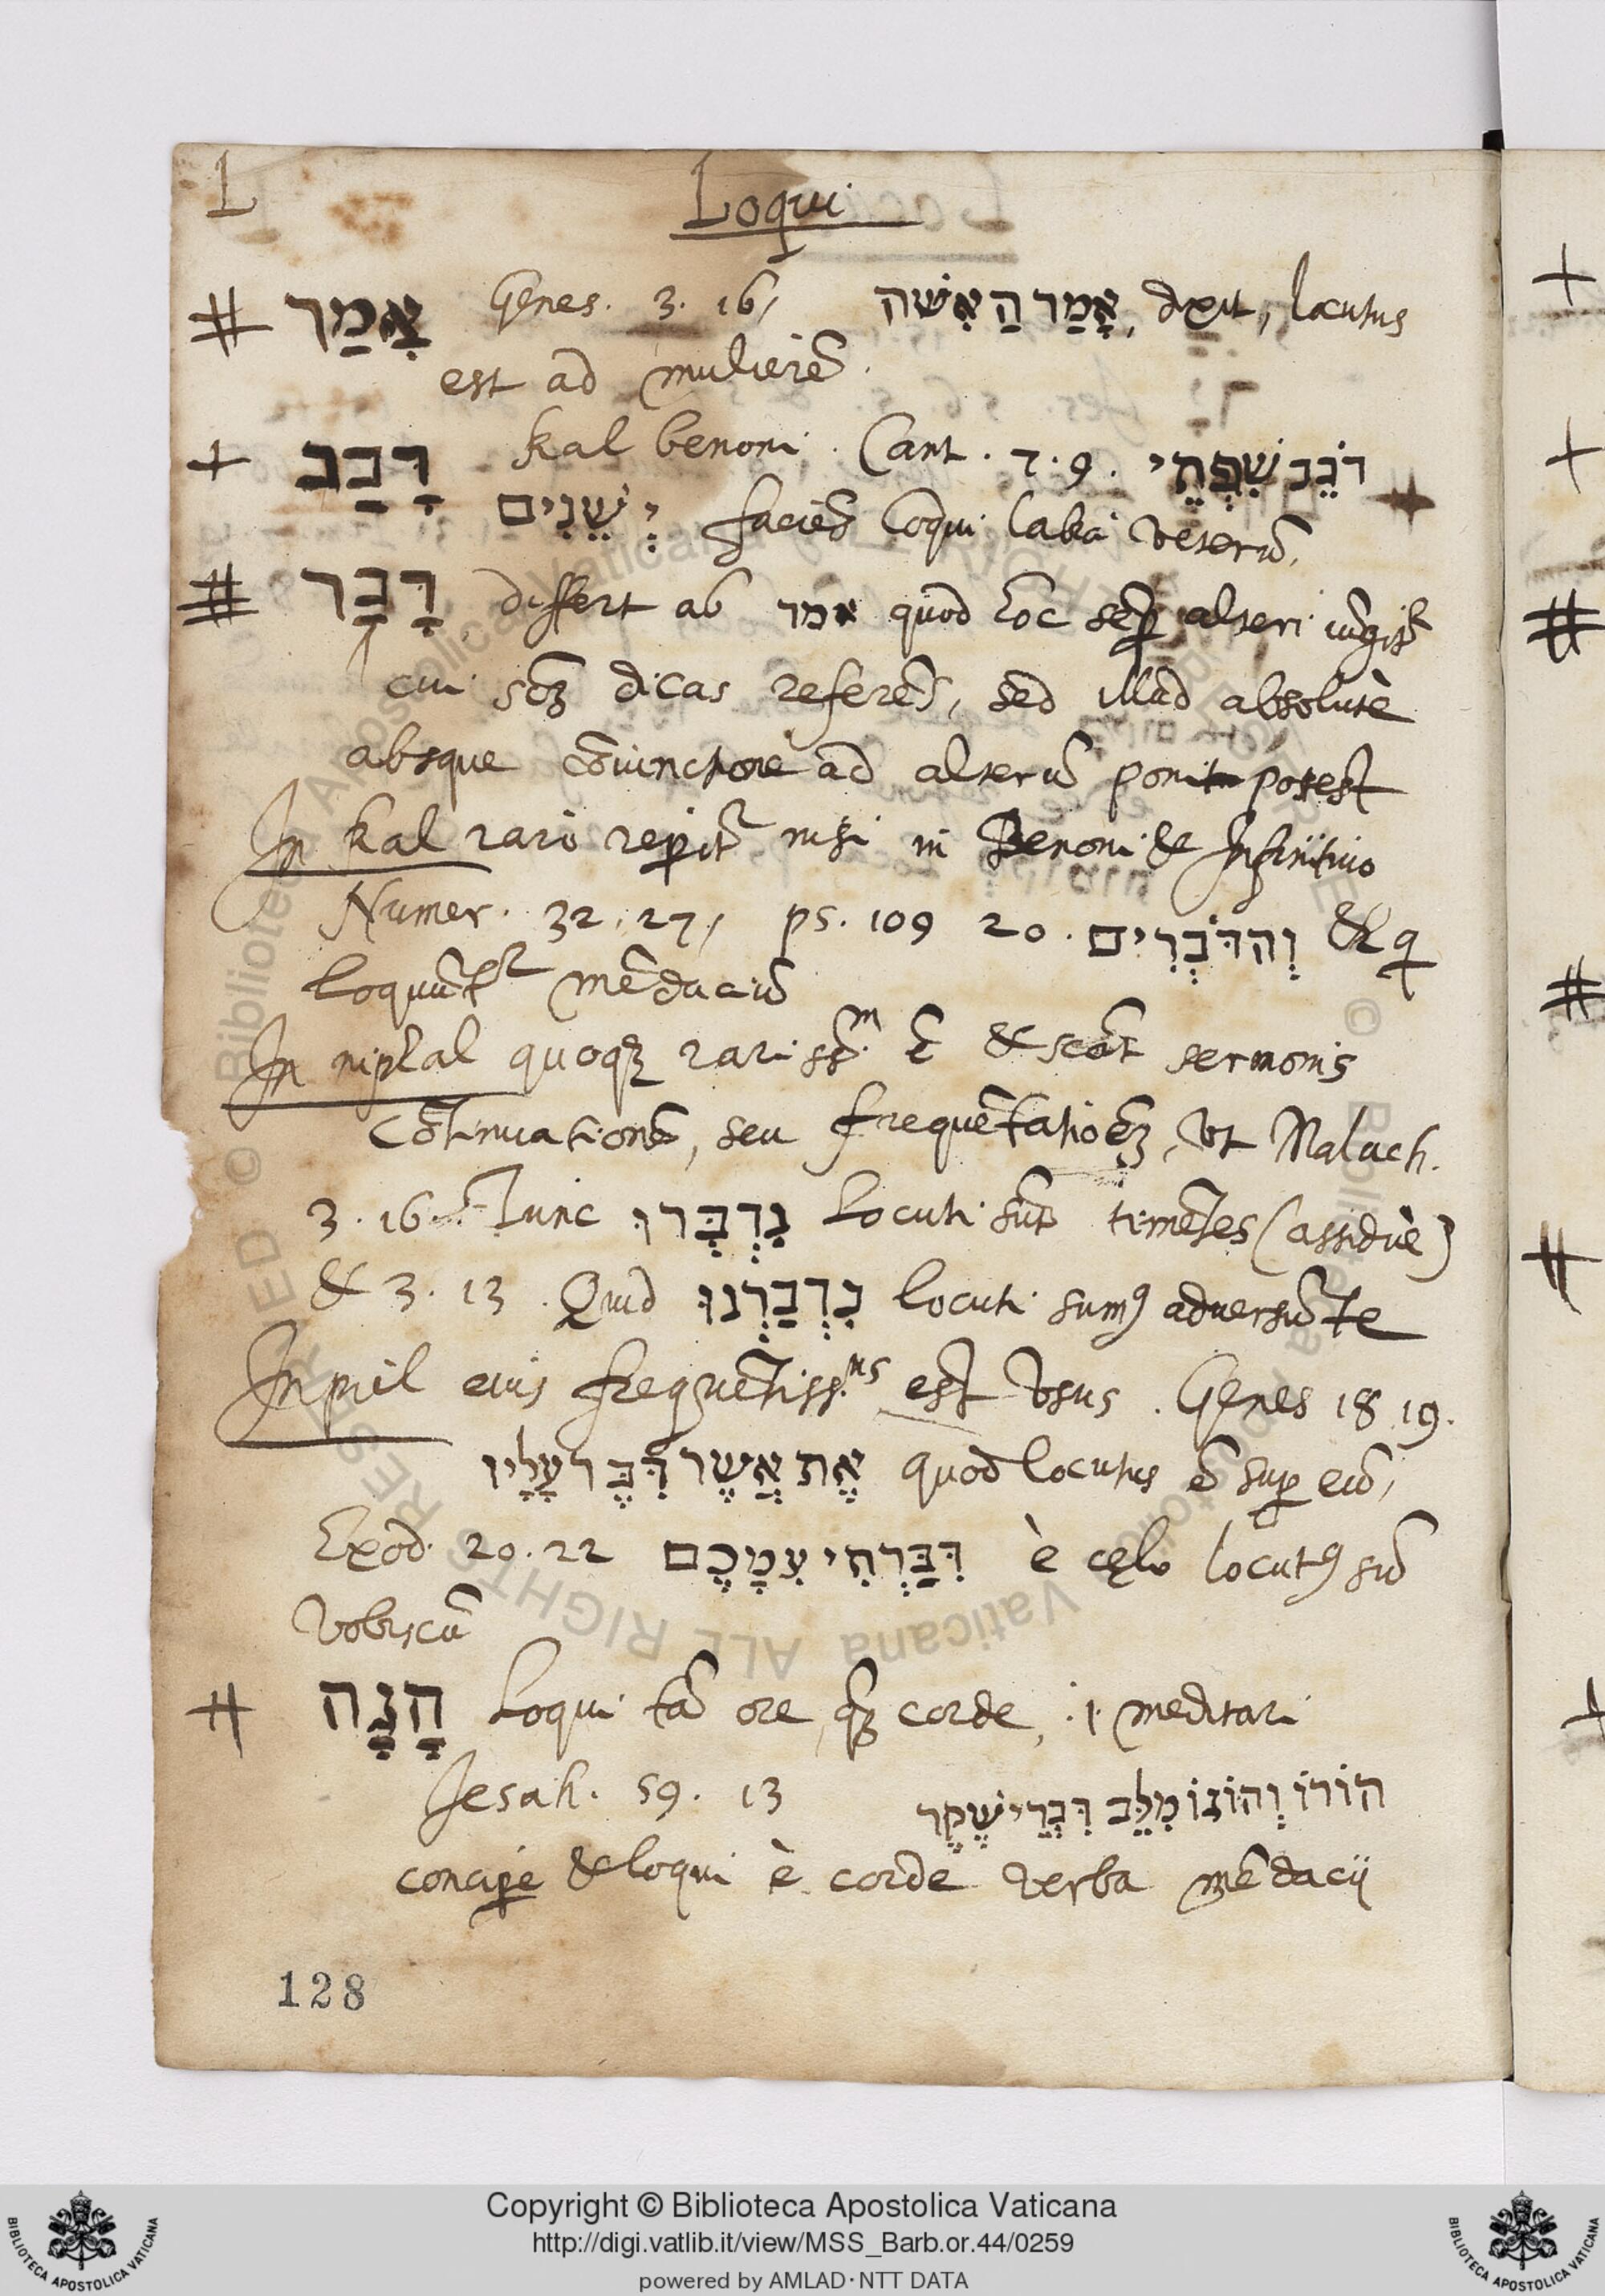 L
Loqui
אָמַר Genes. 3. 16, אָמַר הַאִשׁה, dixit, locutus
est ad mulierē.
דָּבַב kal benoni. Cant. 7. 9. דֹּבֵב שִׂפְתֵי
יְשֵׁנִים faciēs loqui labia veterū,
דָּבָר differt ab אמר quod hoc sēp alteri iūgitr
cui dicas referēs, sed illud absolutè
absque cōiunctione ad alterū poni potest
In kal raro repitr nisi in Benoni & Infinitiuo
Numer. 32. 27, ps. 109 20. וְהדֹּבְרִים & q
loquūtr mēdaciū
In niphal quoqz rarissm. ē & sermonis
cōtinuationē, seu frequētatioēz, vt Malach.
3. 16 Tunc נִדְבְּרוּ locuti sūt timētes (assiduè)
& 3. 13. Quid נִדְבַּרְנוּ locuti sum9 aduersū te
In piel eius frequētiss.us est vsus. Genes 18 19.
אֶת אֲשֶׁר דִּבֶּר עָלָיו quod locutus ē sup eū,
Exod. 20. 22 דִּבַּרְתִּי עִמָּכֶם è cęlo locut9 sū
vobiscū
הָגָה Loqui tā ore, qz corde, .i. meditari
Jesah. 59. 13 הוֹרוֹ וְהוֹגוֹ מִלֵּב דִּבְרֵי שֶׁקֶר
concipe & loqui è corde verba mēdacij
128
Copyright © Biblioteca Apostolica Vaticana
http://digi.vatlib.it/view/MSS_Barb.or.44/0259
powered by AMLAD·NTT DATA
BIBLIOTECA APOSTOLICA VATICANA
BIBLIOTECA APOSTOLICA VATICANA